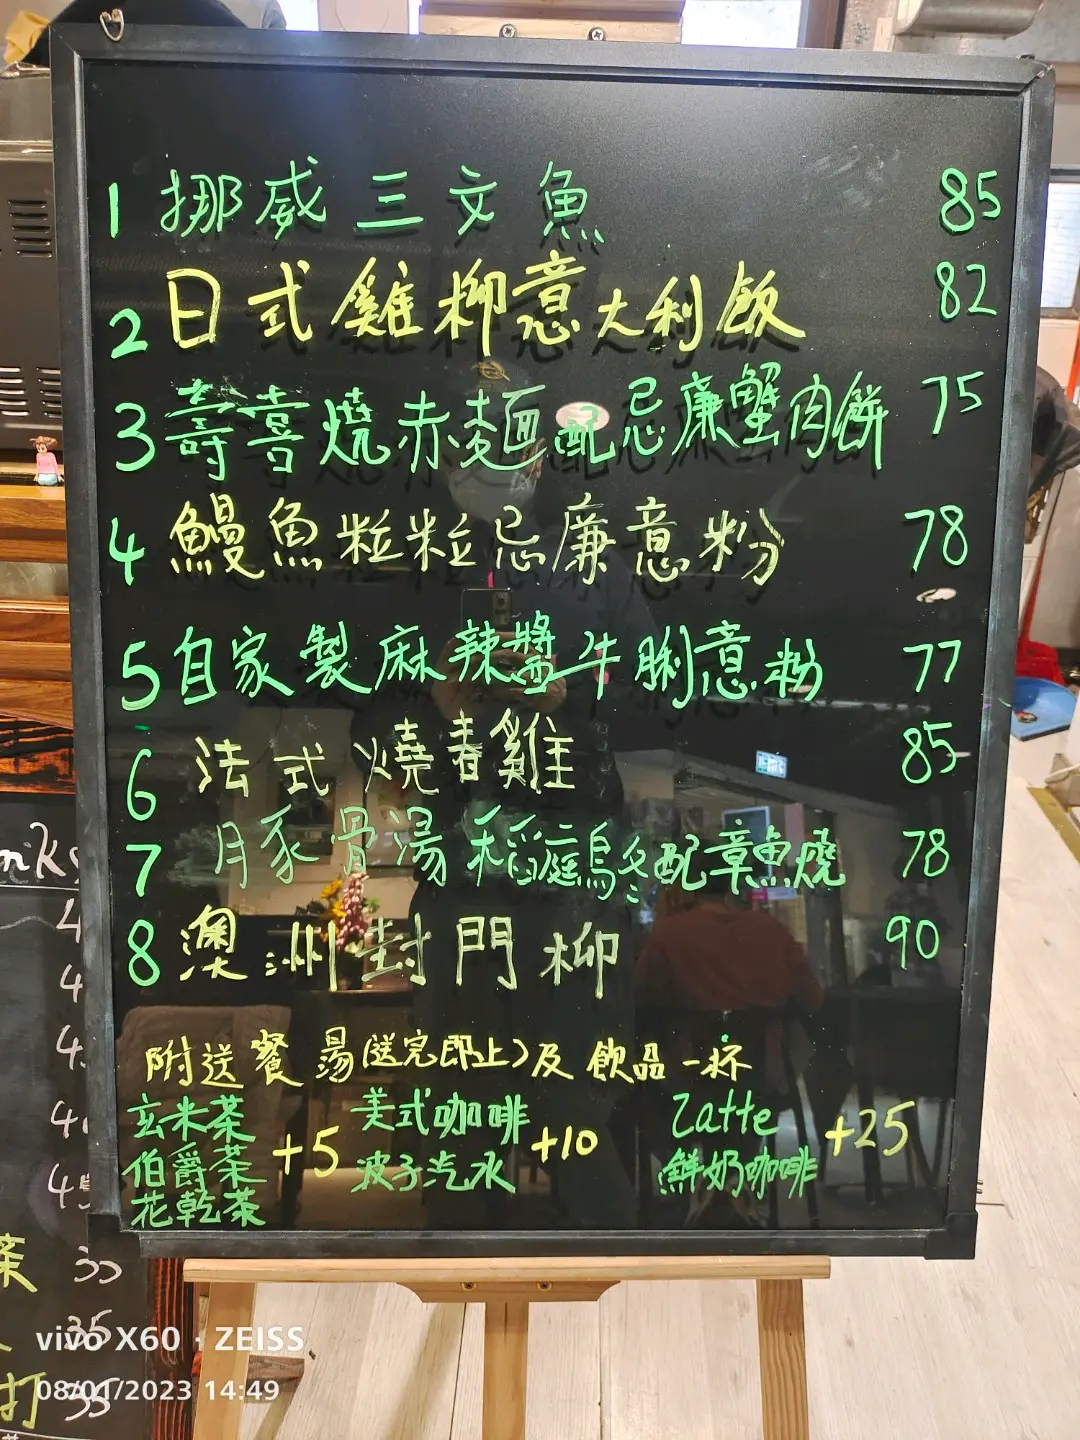 1 挪威三文魚 85
2 日式雞柳意大利飯 82
3 壽喜燒赤麵配忌廉蟹肉餅 75
4 鰻魚粒粒忌廉意粉 78
5 自家製麻辣醬牛脷意粉 77
6 法式燒春雞 85
7 月豕骨湯稻庭烏冬配章魚燒 78
8 澳洲封門柳 90
附送餐湯(送完即止)及飲品一杯
玄米茶
伯爵茶 +5
花乾茶
美式咖啡
波子汽水 +10
Latte
鮮奶咖啡 +25
茶 35
35
打 35
vivo X60 · ZEISS
08/01/2023 14:49